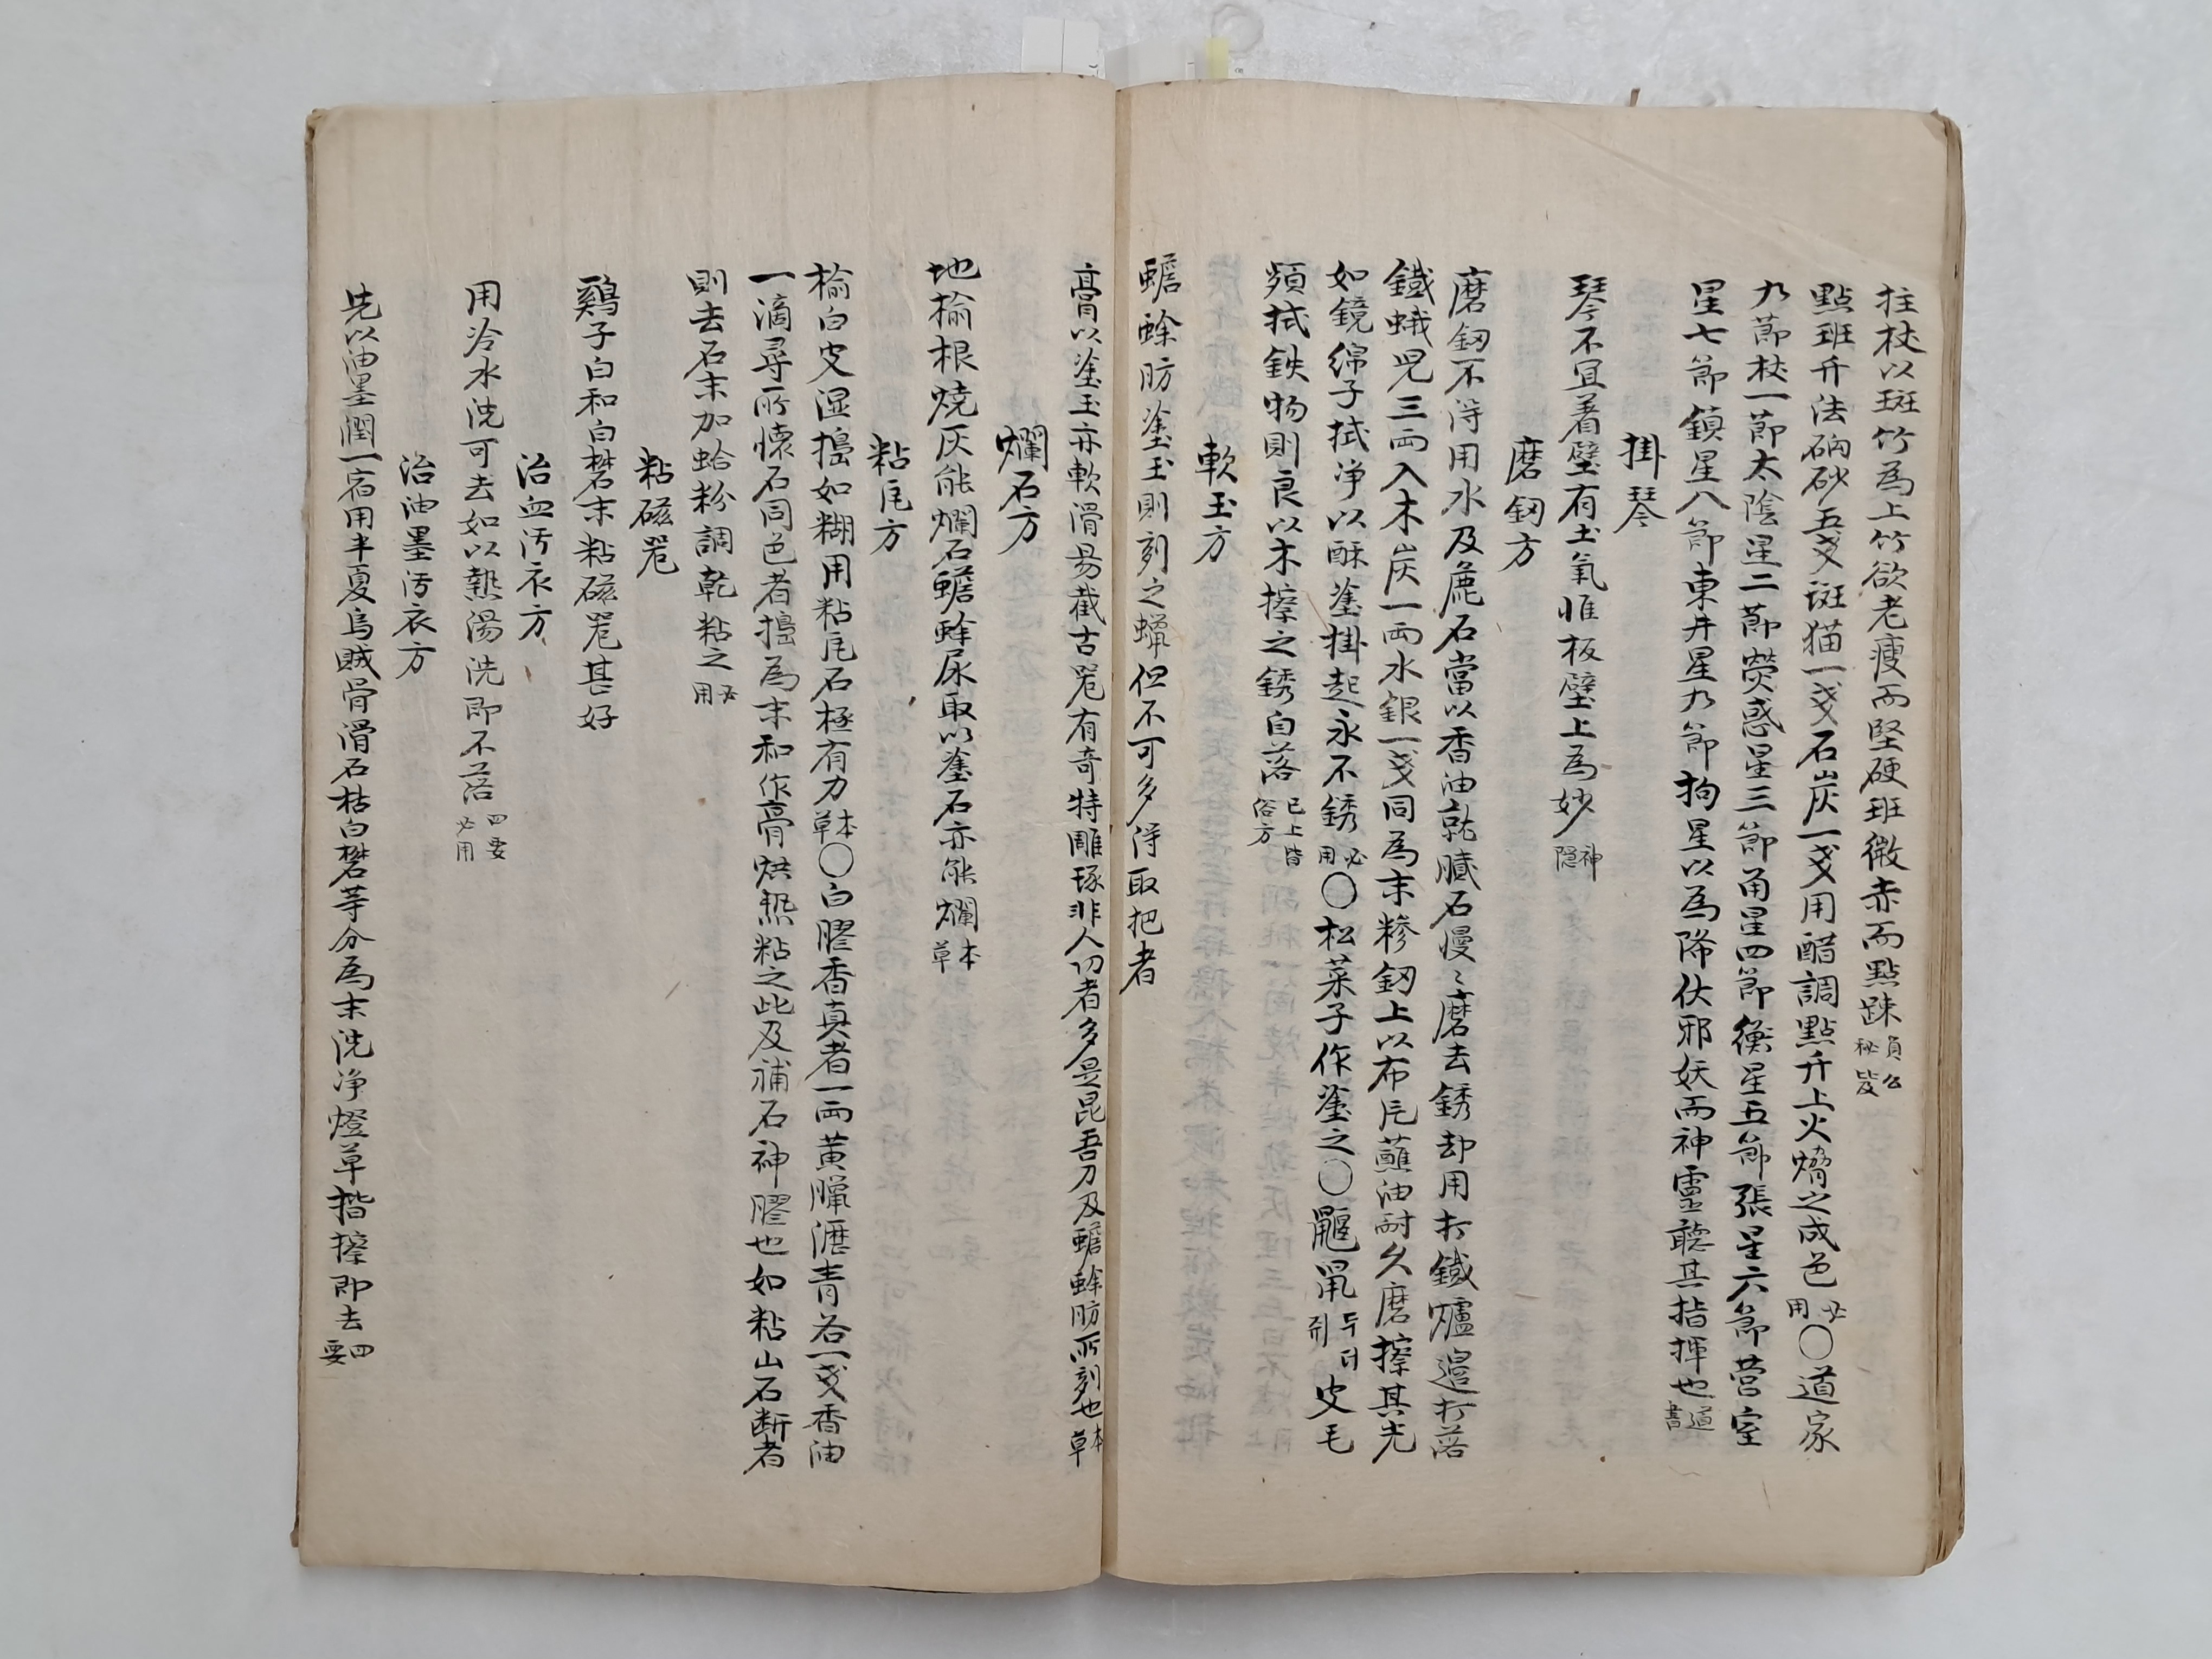 拄杖以斑竹為上竹欲老瘦而堅硬班微赤而點踈負公秘皆
點班竹法硇砂五戔斑猫一戔石炭一戔用醋調點竹上火熁之成色必用〇道家
九節杖一節太陰星二節熒惑星三節角星四節衡星五節張星六節營室
星七節鎮星八節東井星九節拘星以為降伏邪妖而神靈聽其指揮也道書
掛琴
琴不宜着壁有土氣惟板壁上為妙神隱
磨釰方
磨釰不淂用水及麁石當以香油就膩石慢〻磨去銹却用打鐵爐邉打落
鐵蛾兒三兩入木炭一兩水銀一戔同為末糝釰上以布片蘸油耐久磨擦其光
如鏡綿子拭净以酥塗掛起永不銹必用〇松菜子作塗之〇鼴鼠두더쥐皮毛
頻拭鉄物則良以木擦之銹自落已上皆俗方
軟玉方
蟾蜍肪塗玉則刻之如蠟但不可多淂取把者
膏以塗玉亦軟滑易截古器有奇特雕琢非人功者多是昆吾刀及蟾蜍肪所刻也本草
爛石方
地榆根燒灰能爛石蟾蜍尿取以塗石亦能爛本草
粘瓦方
榆白皮湿搗如糊用粘瓦石極有力本草〇白膠香真者一兩黄臘瀝青各一戔香油
一滴尋所懷石同色者搗為末和作膏烘熱粘之此及補石神膠也如粘山石断者
則去石末加蛤粉調乾粘之必用
粘磁器
鷄子白和白礬末粘磁器甚好
治血汚衣方
用冷水洗可去如以熱湯洗即不落四要必用
治油墨汚衣方
先以油墨潤一宿用半夏烏賊骨滑石枯白礬等分為末洗净燈草揩擦即去四要